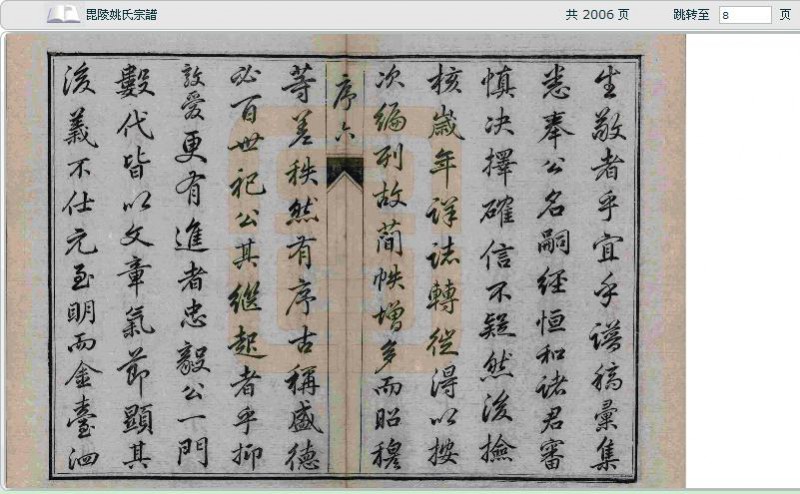 毘陵姚氏宗譜 共 2006 页 跳转至 8 页
生敬者乎宜乎譜稿彙集
悉奉公名嗣經恒和诸君審
慎决擇確信不疑然後撿
核歲年詳誌轉徙得以按
次编列故簡帙增多而昭穆
序六
等差秩然有序古稱盛德
必百世祀公其继起者乎抑
敦爱更有進者忠毅公一門
數代皆以文章氣節顯其
後義不仕元至明而金臺泗